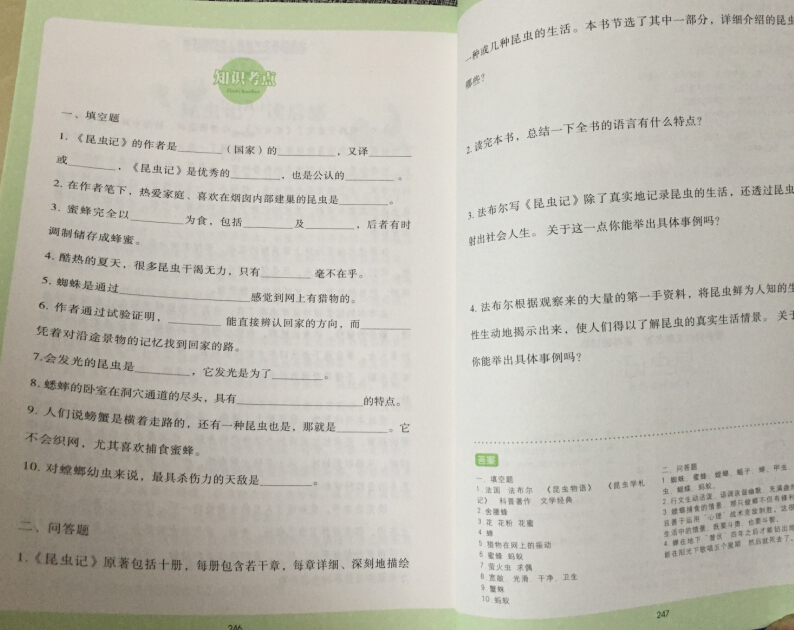 知识考点
一、填空题
1.《昆虫记》的作者是________（国家）的________，又译________
或________，《昆虫记》是优秀的________，也是公认的________。
2. 在作者笔下，热爱家庭、喜欢在烟囱内部建巢的昆虫是________。
3. 蜜蜂完全以________为食，包括________及________，后者有时
调制储存成蜂蜜。
4. 酷热的夏天，很多昆虫干渴无力，只有________毫不在乎。
5. 蜘蛛是通过________________感觉到网上有猎物的。
6. 作者通过试验证明，________能直接辨认回家的方向，而________
凭着对沿途景物的记忆找到回家的路。
7.会发光的昆虫是________，它发光是为了________。
8. 蟋蟀的卧室在洞穴通道的尽头，具有________________的特点。
9. 人们说螃蟹是横着走路的，还有一种昆虫也是，那就是________。它
不会织网，尤其喜欢捕食蜜蜂。
10. 对螳螂幼虫来说，最具杀伤力的天敌是________。
二、问答题
1.《昆虫记》原著包括十册，每册包含若干章，每章详细、深刻地描绘
246
一种或几种昆虫的生活。本书节选了其中一部分，详细介绍的昆虫
哪些？
2.读完本书，总结一下全书的语言有什么特点？
3. 法布尔写《昆虫记》除了真实地记录昆虫的生活，还透过昆虫
射出社会人生。关于这一点你能举出具体事例吗？
4. 法布尔根据观察来的大量的第一手资料，将昆虫鲜为人知的生
性生动地揭示出来，使人们得以了解昆虫的真实生活情景。关于
你能举出具体事例吗？
答案
一、填空题
1. 法国 法布尔 《昆虫物语》 《昆虫学札
记》 科普著作 文学经典
2. 舍腰蜂
3. 花 花粉 花蜜
4. 蝉
5. 猎物在网上的振动
6. 蜜蜂 蚂蚁
7. 萤火虫 求偶
8. 宽敞、光滑、干净、卫生
9. 蟹蛛
10. 蚂蚁
二、问答题
1. 蜘蛛、蜜蜂、螳螂、蝎子、蝉、甲虫
虫、蝴蝶、蚂蚁。
2. 行文生动活泼，语调诙谐幽默，充满盎然
3. 螳螂捕食的情景，
且善于运用“心理”战术
生活中的情景，既要斗勇，也要斗智。
4. 蝉在地下“潜伏”四年之后才能钻出地
能在阳光下歌唱五个星期，然后就死去了。
247